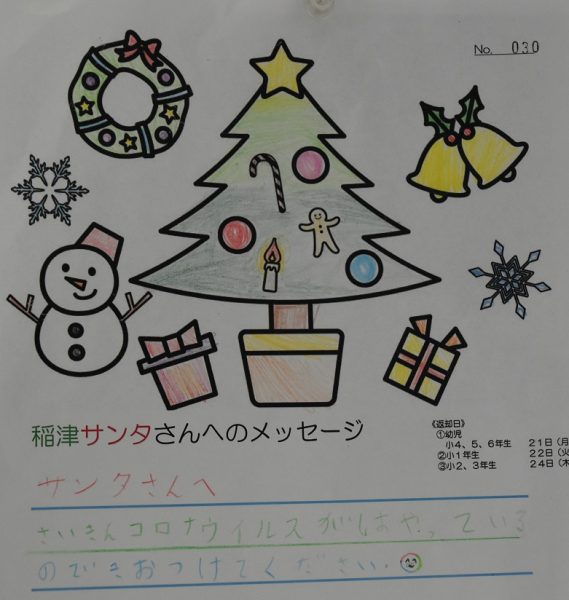 No. 030
稲津サンタさんへのメッセージ
《返却日》
①幼児
小4、5、6年生 21日(月
②小1年生 22日(火
③小2、3年生 24日(木
サンタさんへ
さいきんコロナウイルスがはやっている
のできおつけてください.